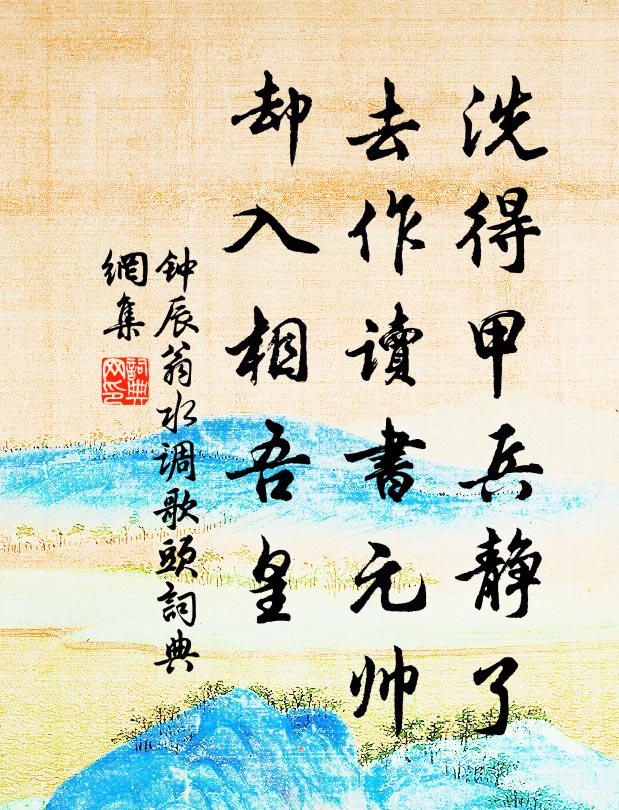 洗得甲兵静了
去作讀書元帅
却入相吾皇
钟辰翁水调歌頭詞典
網集
詞典
网印